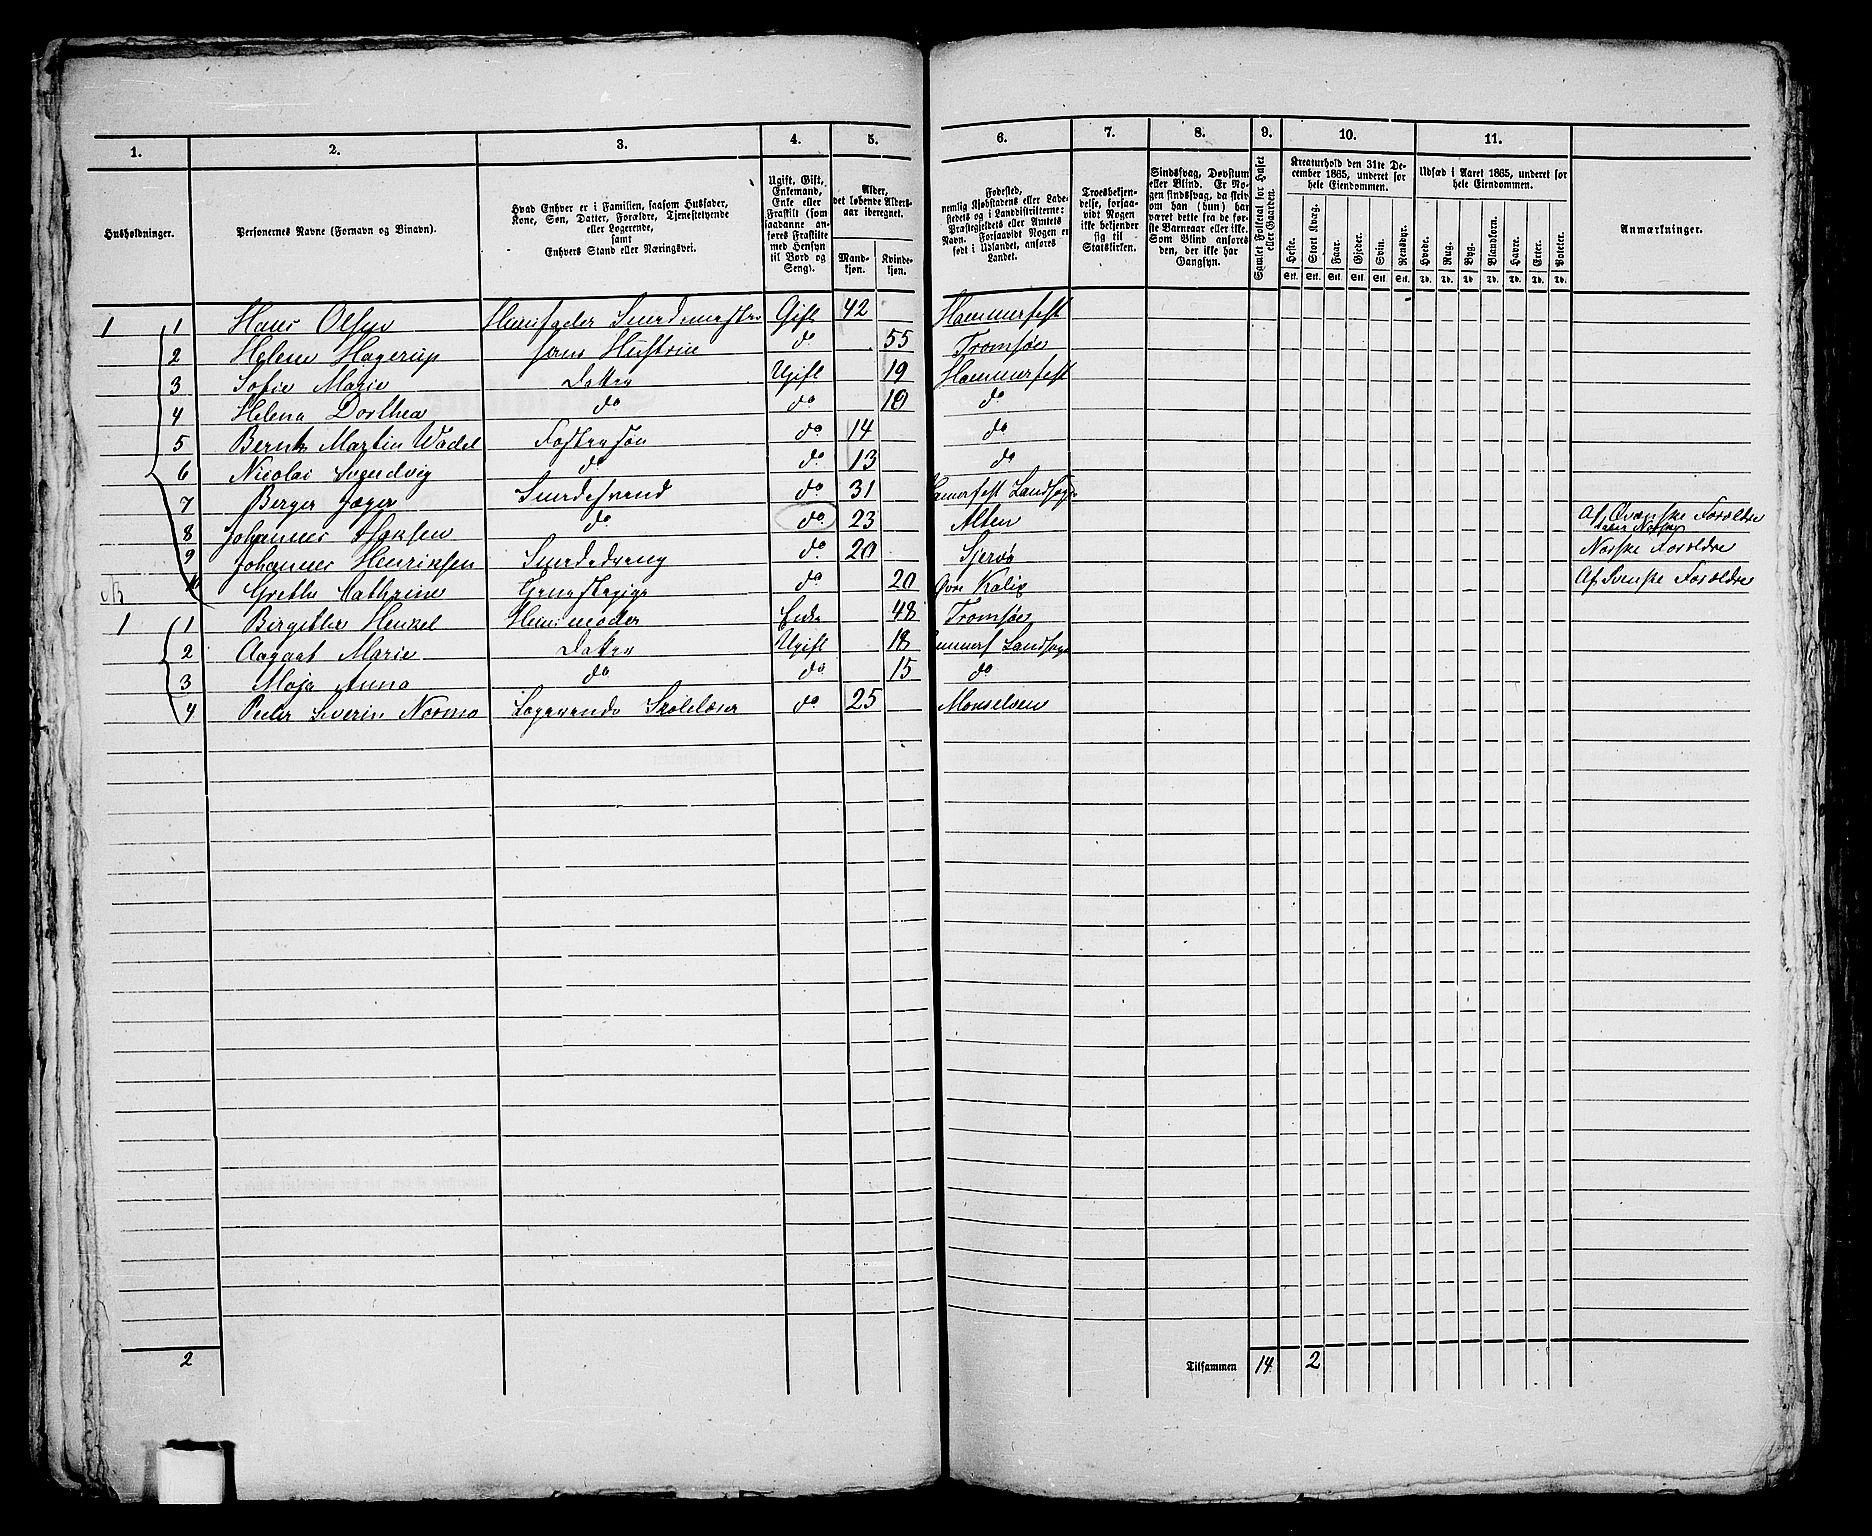 1. 2. 3. 4. 5. 6. 7. 8. 9. 10. 11.
Husholdninger.
Personernes Navne (Fornavn og Binavn).
Hvad Enhver er i Familien, saasom Husfader, Kone, Søn, Datter, Forældre, Tjenestetyende eller Logerende, samt Enhvers Stand eller Næringsvei.
Ugift, Gift, Enkemand, Enke eller Fraskilt (som saadanne anføres Fraskilte med Hensyn til Bord og Seng).
Alder, det løbende Alders-aar iberegnet.
Mand-kjøn.
Kvinde-kjøn.
Fødested, nemlig Kjøbstadens eller Ladestedets og i Landdistrikterne: Præstegjeldets eller Amtets Navn. Forsaavidt Nogen er født i Udlandet, anføres Landet.
Troesbekjendelse, forsaavidt Nogen ikke bekjender sig til Statskirken.
Sindssvag, Døvstum eller Blind. Er Nogen sindssvag, da skriv om han (hun) har været dette fra de første Barneaar eller ikke. Som Blind anføres den, der ikke har Gangsyn.
Samlet Folketal for Huset eller Gaarden.
Kreaturhold den 31te December 1865, underet for hele Eiendommen.
Heste. Stort Kvæg. Faar. Gjeder. Svin. Rensdyr.
Stk. Stk. Stk. Stk. Stk. Stk.
Udsæd i Aaret 1865, underet for hele Eiendommen.
Hvede. Rug. Byg. Blandkorn. Havre. Erter. Poteter.
Td. Td. Td. Td. Td. Td. Td.
Anmærkninger.
1 1 Hans Olsen Huusfader Smedemester Gift 42 Hammerfest
2 Helene Hagerup hans Hustrue do 55 Tromsøe
3 Sofie Marie Datter Ugift 19 Hammerfest
4 Helena Dorthea do do 10 do
5 Bernt Martin Wadel Fostersøn do 14 do
6 Nicolai Svendvig do do 13 do
7 Berger Jæger Smedesvend do 31 Hamerfest Landsogn
8 Johannes do do 23 Alten Af Qvænske Forældre
9 Johannes Henriksen Smededreng do 20 Norske Forældre
10 Grethe Cathrine do 20 Øvre Kalix Af Svenske Forældre
1 1 Birgitte Henkel Huusmoder Enke 48 Tromsøe
2 Aagaat Marie Datter Ugift 18 Hammerf Landsogn
3 Maja Anna do do 15 do
4 Peder Severin Normo Logerende Skolelærer do 25 Maaselven
2 Tilsammen 14 2